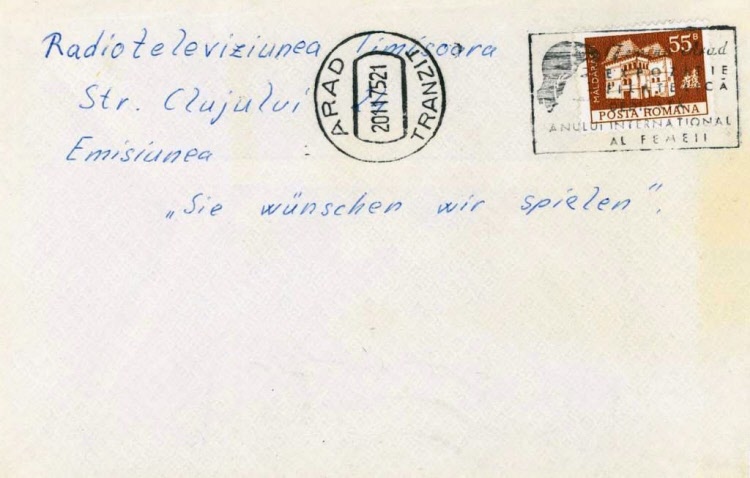 Radioteleviziunea Timisoara
Str. Clujului
Emisiunea
„Sie wünschen wir spielen".
ARAD
TRANZIT
55B
POSTA ROMANA
ANULUI INTERNATIONAL
AL FEMEII